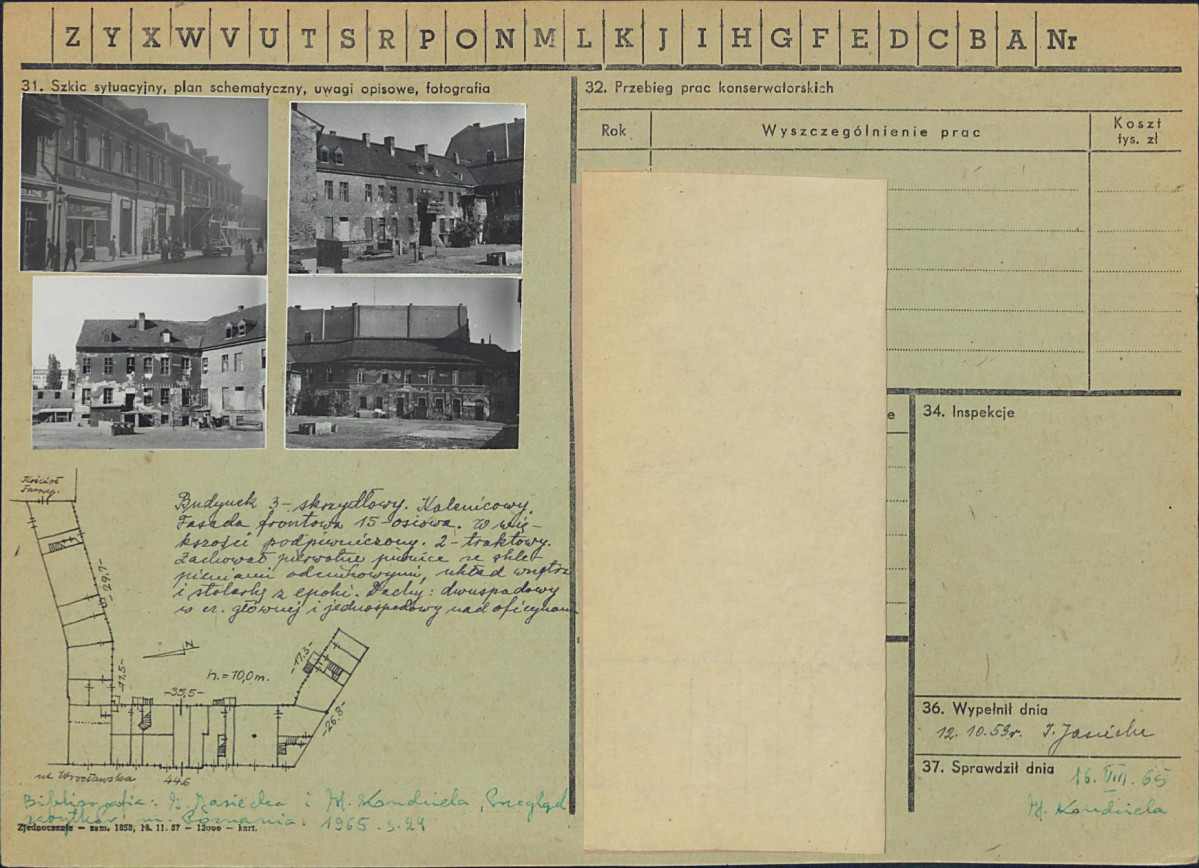 Z Y X W V U T S R P O N M L K J I H G F E D C B A Nr
31. Szkic sytuacyjny, plan schematyczny, uwagi opisowe, fotografia
Kościół
Farny.
Budynek 3-skrzydłowy. Kalenicowy.
Fasada frontowa 15-osiowa. W wię-
kszości podpiwniczony. 2-traktowy.
Zachował pierwotne piwnice ze skle-
pieniami odcinkowymi, układ wnętrz
i stolarkę z epoki. Dachy: dwuspadowy
w cz. głównej i jednospadowy nad oficynami
-29,7-
-17,5-
N
h. = 10,0 m.
-35,5-
-17,3-
-26,8-
ul. Wrocławska
44,6
Bibliografia: I. Jasiecka i H. Kondziela, Przegląd
zabytków m. Poznania. 1965. s. 24
Zjednoczenie — zam. 1858, 18. 11. 57 — 12000 — kart.
32. Przebieg prac konserwatorskich
Rok
Wyszczególnienie prac
Koszt
tys. zł
e
34. Inspekcje
36. Wypełnił dnia
12. 10. 59r. I. Jasiecka
37. Sprawdził dnia
16. VIII. 65
H. Kondziela